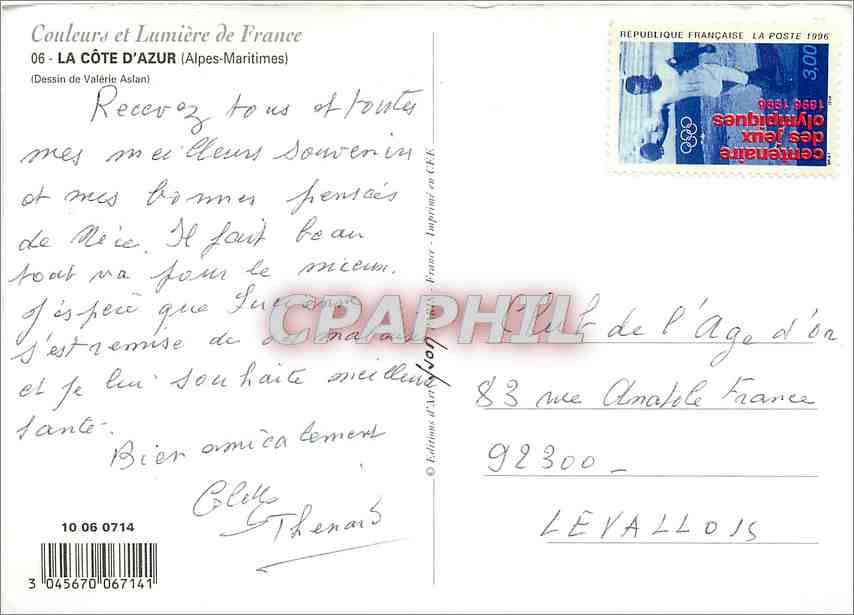 Couleurs et Lumière de France
06 - LA CÔTE D'AZUR (Alpes-Maritimes)
(Dessin de Valérie Aslan)
Recevez tous et toutes
mes meilleurs souvenirs
et mes bonnes pensées
de Nice. Il fait beau
tout va pour le mieux.
J'espère que
s'est remise de
et je lui souhaite meilleure
santé.
Bien amicalement
Thenard
10 06 0714
3 045670 067141
© Editions d'Art - France - Imprimé en CEE
RÉPUBLIQUE FRANÇAISE LA POSTE 1996
3,00
centenaire
des jeux
olympiques
1896 1996
CPAPHIL
Club de l'Age d'or
83 rue Anatole France
92300 -
LEVALLOIS